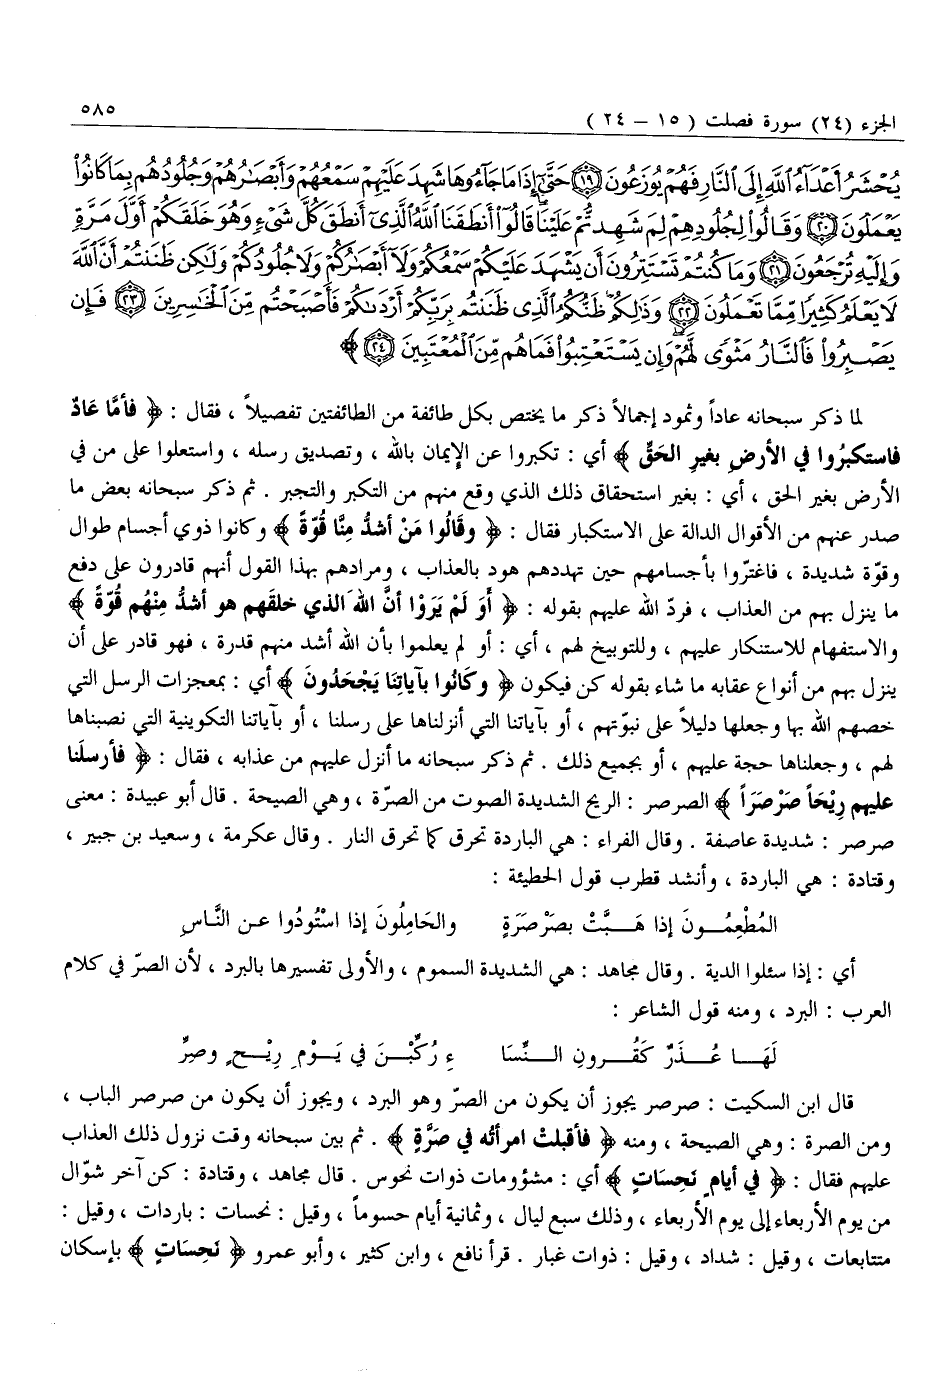 الجزء (٢٤) سورة فصلت ( ١٥ – ٢٤ )
٥٨٥
يُحْشَرُ أَعْدَآءُ ٱللَّهِ إِلَى ٱلنَّارِ فَهُمْ يُوزَعُونَ ﴿١٩﴾ حَتَّىٰٓ إِذَا مَا جَآءُوهَا شَهِدَ عَلَيْهِمْ سَمْعُهُمْ وَأَبْصَـٰرُهُمْ وَجُلُودُهُم بِمَا كَانُوا۟
يَعْمَلُونَ ﴿٢٠﴾ وَقَالُوا۟ لِجُلُودِهِمْ لِمَ شَهِدتُّمْ عَلَيْنَا قَالُوٓا۟ أَنطَقَنَا ٱللَّهُ ٱلَّذِىٓ أَنطَقَ كُلَّ شَىْءٍ وَهُوَ خَلَقَكُمْ أَوَّلَ مَرَّةٍ
وَإِلَيْهِ تُرْجَعُونَ ﴿٢١﴾ وَمَا كُنتُمْ تَسْتَتِرُونَ أَن يَشْهَدَ عَلَيْكُمْ سَمْعُكُمْ وَلَآ أَبْصَـٰرُكُمْ وَلَا جُلُودُكُمْ وَلَـٰكِن ظَنَنتُمْ أَنَّ ٱللَّهَ
لَا يَعْلَمُ كَثِيرًا مِّمَّا تَعْمَلُونَ ﴿٢٢﴾ وَذَٰلِكُمْ ظَنُّكُمُ ٱلَّذِى ظَنَنتُم بِرَبِّكُمْ أَرْدَىٰكُمْ فَأَصْبَحْتُم مِّنَ ٱلْخَـٰسِرِينَ ﴿٢٣﴾ فَإِن
يَصْبِرُوا۟ فَٱلنَّارُ مَثْوًى لَّهُمْ وَإِن يَسْتَعْتِبُوا۟ فَمَا هُم مِّنَ ٱلْمُعْتَبِينَ ﴿٢٤﴾ ﴾
لما ذكر سبحانه عاداً وثمود إجمالاً ذكر ما يختص بكل طائفة من الطائفتين تفصيلاً ، فقال : ﴿ فأمَّا عَادٌ
فاستكبرُوا في الأرضِ بغيرِ الحَقِّ ﴾ أي : تكبروا عن الإيمان بالله ، وتصديق رسله ، واستعلوا على من في
الأرض بغير الحق ، أي : بغير استحقاق ذلك الذي وقع منهم من التكبر والتجبر . ثم ذكر سبحانه بعض ما
صدر عنهم من الأقوال الدالة على الاستكبار فقال : ﴿ وقَالُوا مَنْ أشدُّ مِنَّا قُوّةً ﴾ وكانوا ذوي أجسام طوال
وقوّة شديدة ، فاغترّوا بأجسامهم حين تهددهم هود بالعذاب ، ومرادهم بهذا القول أنهم قادرون على دفع
ما ينزل بهم من العذاب ، فردّ الله عليهم بقوله : ﴿ أَوَ لَمْ يَرَوْا أنَّ اللهَ الذي خلقَهم هو أشدُّ مِنْهُم قُوّةً ﴾
والاستفهام للاستنكار عليهم ، وللتوبيخ لهم ، أي : أو لم يعلموا بأن الله أشد منهم قدرة ، فهو قادر على أن
ينزل بهم من أنواع عقابه ما شاء بقوله كن فيكون ﴿ وكَانُوا بآياتِنا يَجْحَدُونَ ﴾ أي : بمعجزات الرسل التي
خصهم الله بها وجعلها دليلاً على نبوّتهم ، أو بآياتنا التي أنزلناها على رسلنا ، أو بآياتنا التكوينية التي نصبناها
لهم ، وجعلناها حجة عليهم ، أو بجميع ذلك . ثم ذكر سبحانه ما أنزل عليهم من عذابه ، فقال : ﴿ فأرسلَنا
عليهم رِيْحَاً صَرْصَرَاً ﴾ الصرصر : الريح الشديدة الصوت من الصرّة ، وهي الصيحة . قال أبو عبيدة : معنى
صرصر : شديدة عاصفة . وقال الفراء : هي الباردة تحرق كما تحرق النار . وقال عكرمة ، وسعيد بن جبير ،
وقتادة : هي الباردة ، وأنشد قطرب قول الحطيئة :
المُطْعِمُــونَ إذا هَــبَّتْ بصَرْصَرَةٍ   والحَامِلُونَ إذا اسْتُودُوا عـن النَّـاسِ
أي : إذا سئلوا الدية . وقال مجاهد : هي الشديدة السموم ، والأولى تفسيرها بالبرد ، لأن الصرّ في كلام
العرب : البرد ، ومنه قول الشاعر :
لَهَــا عُــذَرٌ كَقُــرونِ الــنِّسَا   ءِ رُكِّبْــنَ في يَــوْمِ رِيْــحٍ وصِرٍّ
قال ابن السكيت : صرصر يجوز أن يكون من الصرّ وهو البرد ، ويجوز أن يكون من صرصر الباب ،
ومن الصرة : وهي الصيحة ، ومنه ﴿ فأقبلتْ امرأتُه في صَرَّةٍ ﴾ . ثم بين سبحانه وقت نزول ذلك العذاب
عليهم فقال : ﴿ في أيامٍ نَحِسَاتٍ ﴾ أي : مشؤومات ذوات نحوس . قال مجاهد ، وقتادة : كن آخر شوّال
من يوم الأربعاء إلى يوم الأربعاء ، وذلك سبع ليال ، وثمانية أيام حسوماً ، وقيل : نحسات : باردات ، وقيل :
متتابعات ، وقيل : شداد ، وقيل : ذوات غبار . قرأ نافع ، وابن كثير ، وأبو عمرو ﴿ نَحِسَاتٍ ﴾ بإسكان